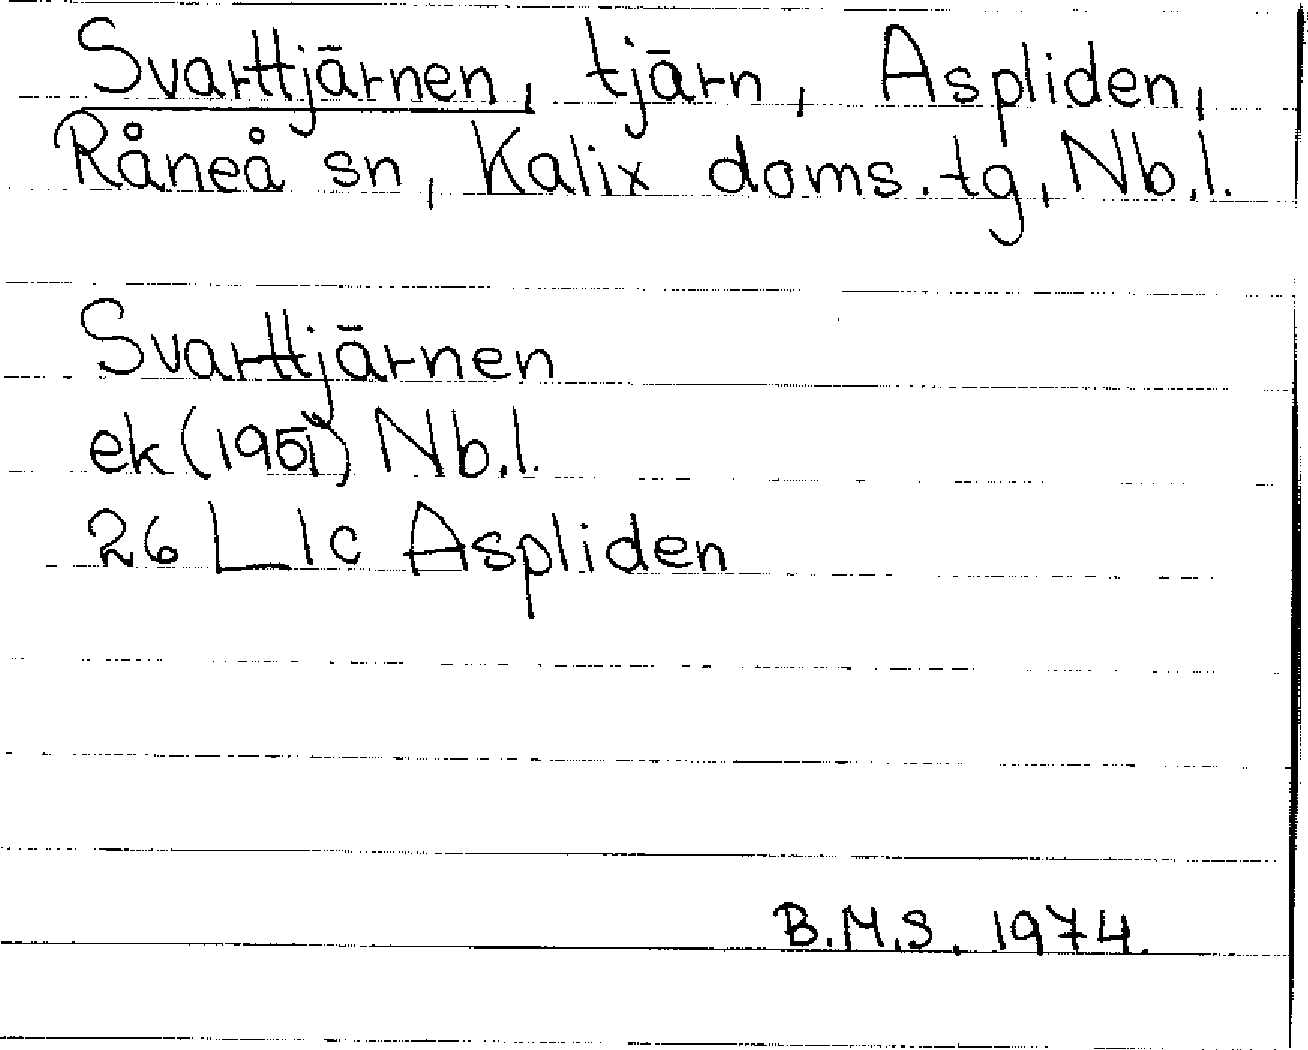 Svarttjärnen, tjärn, Aspliden,
Råneå sn, Kalix doms.tg, Nb.l.
Svarttjärnen
ek (1951) Nb.l.
26 L 1c Aspliden
B.M.S. 1974.